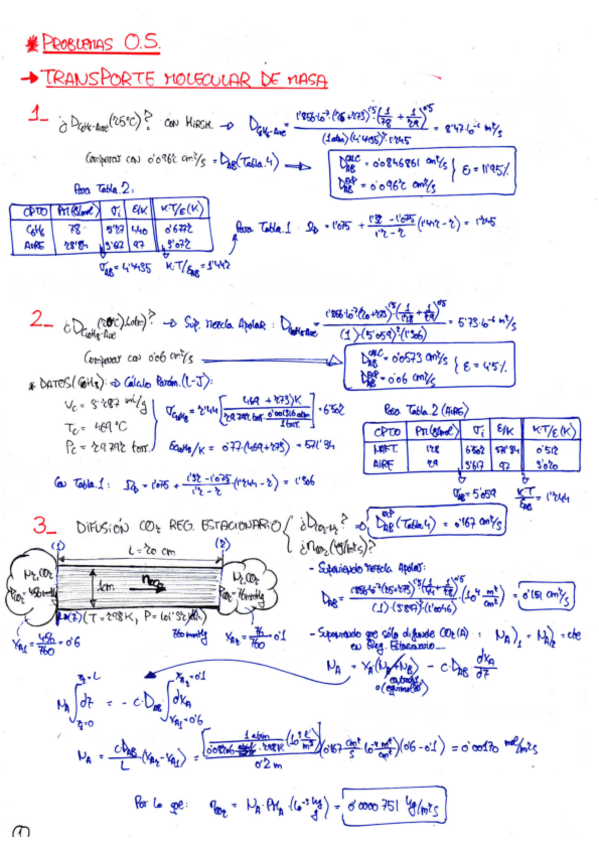 * PROBLEMAS O.S.
→ TRANSPORTE MOLECULAR DE MASA
1_ ¿D_C6H6-Aire (25°C)? CON HIRSH. → D_C6H6-Aire = 1'858·10⁻⁷ (25+273)^1'5 (1/78 + 1/29)^0'5 / (1atm)(4'4495)²·1'245 = 8'47·10⁻⁶ m²/s
Comparar con 0'0962 cm²/s = D_AB (Tabla 4) → D_AB^CALC = 0'0846861 cm²/s
D_AB^EXP = 0'0962 cm²/s } ε = 11'95%
Para Tabla 2:
CPTO PM(g/mol) σi ε/K K·T/ε(K)
C6H6 78 5'27 440 0'6772
AIRE 28'84 3'617 97 3'072
σ_AB = 4'4435 K·T/ε_AB = 1'442
Para Tabla 1: Ω_D = 1'075 + (1'442 - 2) = 1'245
2_ ¿D_C10H8-Aire (20°C, 1atm)? → Sup. mezcla Apolar: D_C10H8-Aire = 1'858·10⁻⁷ (20+273)^1'5 (1/128 + 1/29)^0'5 / (1)·(5'059)²(1'306) = 5'73·10⁻⁶ m²/s
Comparar con 0'06 cm²/s → D_AB^CALC = 0'0573 cm²/s
D_AB^EXP = 0'06 cm²/s } ε = 4'5%
* DATOS (C10H8): → Cálculo Parám. (L-J):
Vc = 3'287 ml/g
Tc = 469 °C
Pc = 29792 torr.
σ_C10H8 = 2'44 [(469 + 273)K / 29792 torr · 0'001316 atm / 1 torr] = 6'502
ε_C10H8/K = 0'77(469+273) = 571'34
Para Tabla 2 (AIRE)
CPTO PM(g/mol) σi ε/K K·T/ε(K)
NAFT. 128 6'502 571'34 0'512
AIRE 29 3'617 97 3'020
σ_AB = 5'059 KT/ε_AB = 1'244
Con Tabla 1: Ω_D = 1'075 + (1'244 - 2) = 1'306
3_ DIFUSIÓN CO2 REG. ESTACIONARIO { ¿D_CO2-N2? ⇒ D_AB^exp (Tabla 4) = 0'167 cm²/s
¿n_CO2 (kg/m²s)?
(1) (2)
L = 20 cm
N2, CO2
P_CO2 = 456 mmHg
1cm
n_CO2
N2, CO2
P_CO2 = 76 mmHg
(T = 298K, P = 101'32 kPa)
Y_A1 = 456/760 = 0'6 760 mmHg Y_A2 = 76/760 = 0'1
- Suponiendo mezcla Apolar:
D_AB = 1'858·10⁻⁷ (25+273)^1'5 (1/44 + 1/28)^0'5 / (1)·(3'897)²(1'0046) (10⁴ m²/cm²) = 0'151 cm²/s
- Suponiendo que sólo difunde CO2 (A): N_A)₁ = N_A)₂ = cte
en Reg. Estacionario
N_A = Y_A (N_A + N_B) - c·D_AB dY_A/dz
N_A ∫_{z=0}^{z=L} dz = - c·D_AB ∫_{Y_A1=0'6}^{Y_A2=0'1} dY_A
N_A = c·D_AB / L (Y_A2 - Y_A1) = 0'2 m (0'6 - 0'1) = 0'00170 mol/m²s
Por lo que: n_CO2 = N_A · PM_A · (10⁻³ kg/g) = 0'0000751 kg/m²s
(1)